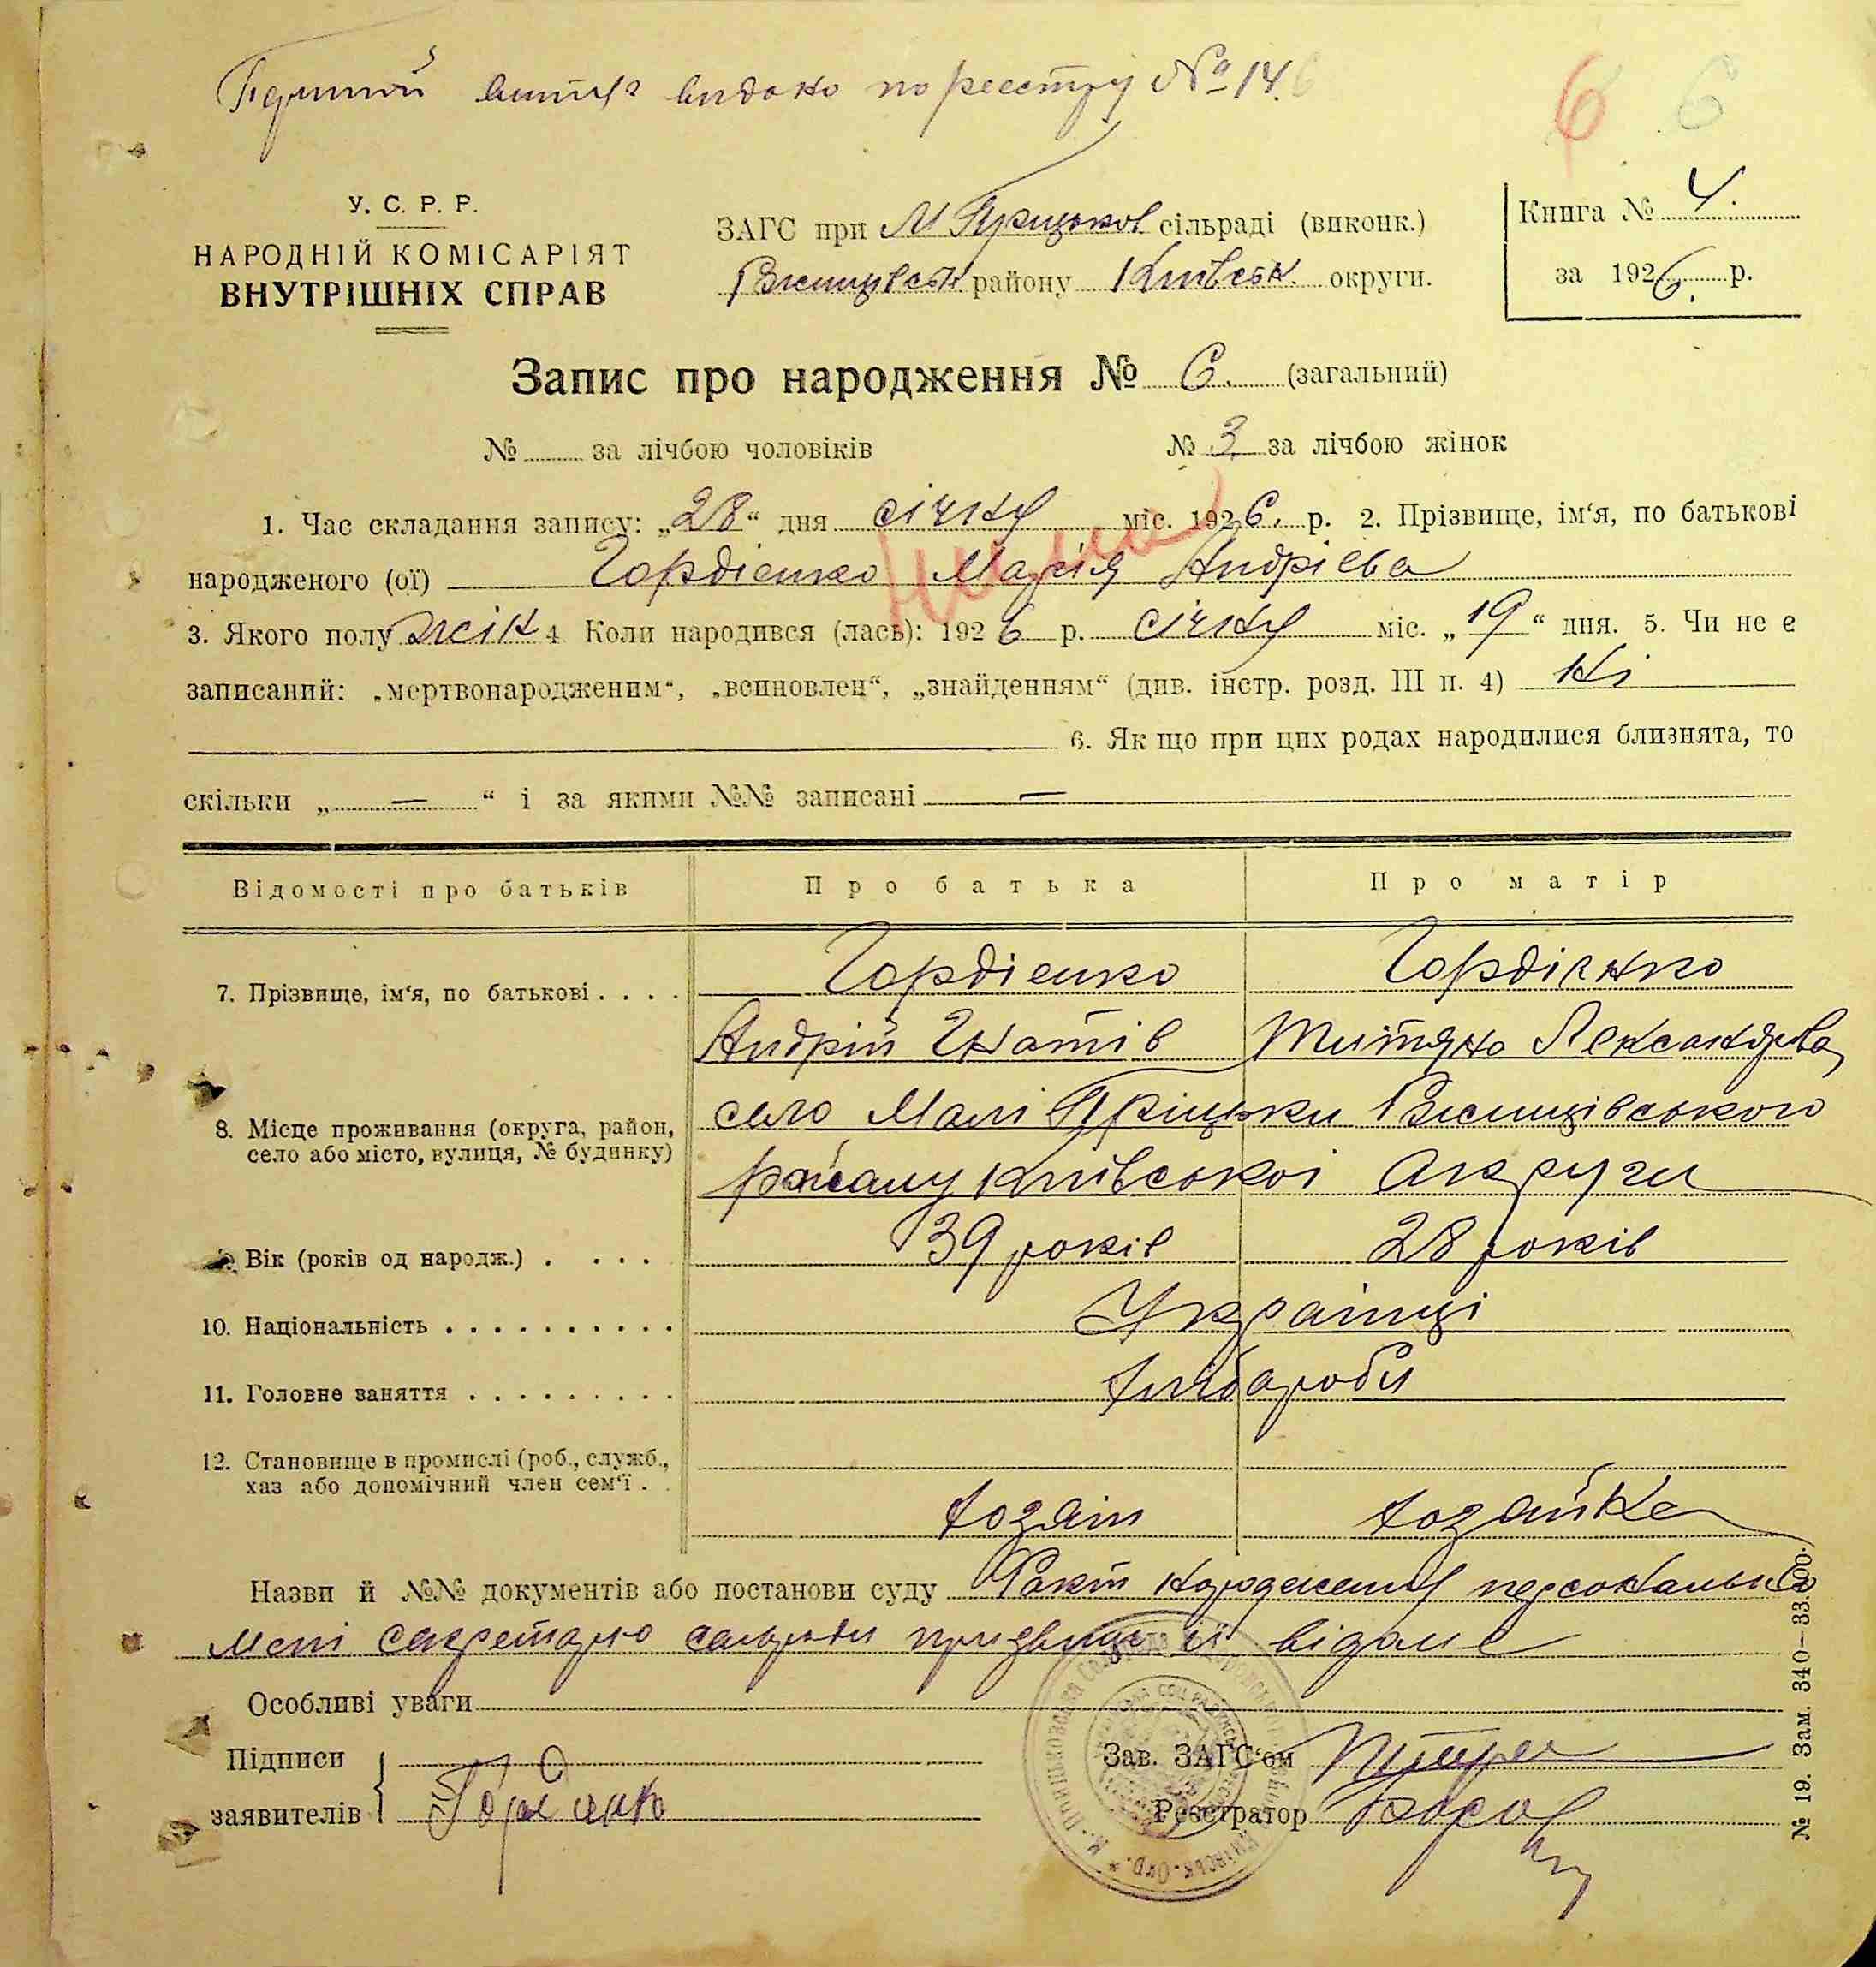 видано по реєстру № 14.
6 6
У. С. Р. Р.
НАРОДНІЙ КОМІСАРІЯТ
ВНУТРІШНІХ СПРАВ
ЗАГС при М Прицьков сільраді (виконк.)
району Київськ. округи.
Книга № 4.
за 1926. р.
Запис про народження № 6. (загальний)
№ за лічбою чоловіків № 3 за лічбою жінок
1. Час складання запису: „28“ дня січня міс. 1926. р. 2. Прізвище, ім‘я, по батькові
народженого (ої) Гордієнко Марія Андрієва
3. Якого полу жін 4 Коли народився (лась): 1926 р. січня міс. „19“ дня. 5. Чи не є
записаний: „мертвонародженим“, „всиновлен“, „знайденням“ (див. інстр. розд. III п. 4) Ні
6. Як що при цих родах народилися близнята, то
скільки „ — “ і за якими №№ записані —
Відомості про батьків Про батька Про матір
7. Прізвище, ім‘я, по батькові . . . . Гордієнко Гордієнко
Андрій Гнатів Титяно Лександрова
8. Місце проживання (округа, район,
село або місто, вулиця, № будинку)
село Малі Пріцьки Ржищівського
району Київської округи
Вік (років од народж.) . . . . 39 років 28 років
10. Національність . . . . . . . . . . Українці
11. Головне заняття . . . . . . . . . хлібароби
12. Становище в промислі (роб., служб.,
хаз або допомічний член сем‘ї . .
хозяін хозяйка
Назви й №№ документів або постанови суду Факт народження персонально
мені секретарю сельради відоме
Особливі уваги
Підписи
заявителів
Гордієнко
Зав. ЗАГС‘ом
Реєстратор
№ 19. Зам. 340—33.000.